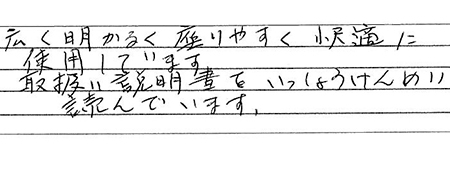 広く明かるく座りやすく快適に
使用しています。
取扱い説明書をいっしょうけんめい
読んでいます。